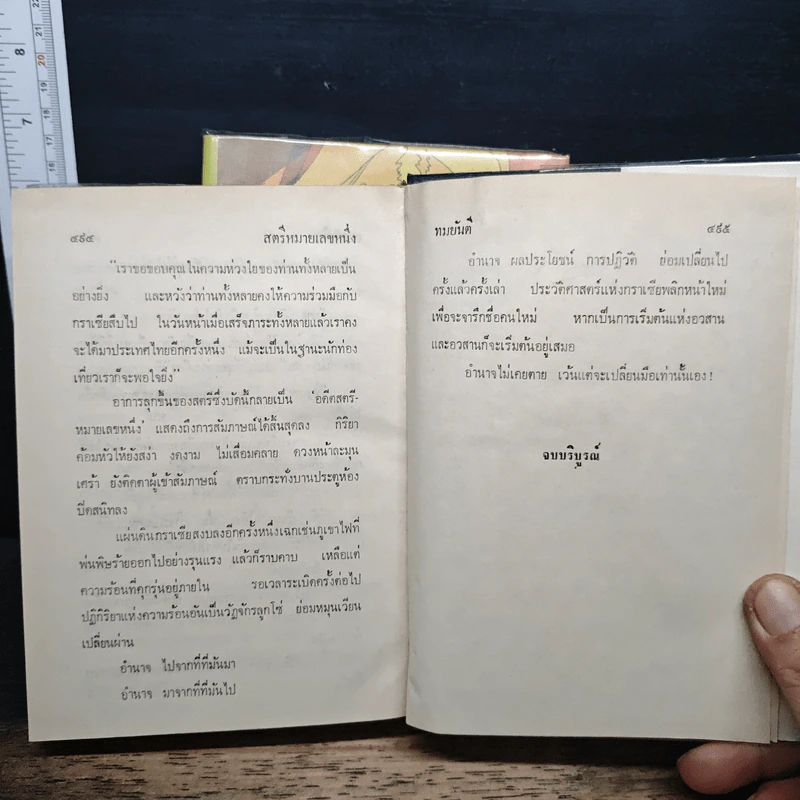 ๔๙๔ สตรีหมายเลขหนึ่ง
"เราขอขอบคุณในความห่วงใยของท่านทั้งหลายเป็น
อย่างยิ่ง และหวังว่าท่านทั้งหลายคงให้ความร่วมมือกับ
กราเซียสืบไป ในวันหน้าเมื่อเสร็จภาระทั้งหลายแล้วเราคง
จะได้มาประเทศไทยอีกครั้งหนึ่ง แม้จะเป็นในฐานะนักท่อง
เที่ยวเราก็จะพอใจยิ่ง"
อาการลุกขึ้นของสตรีซึ่งบัดนี้กลายเป็น 'อดีตสตรี-
หมายเลขหนึ่ง' แสดงถึงการสัมภาษณ์ได้สิ้นสุดลง กิริยา
ค้อมหัวให้ยังสง่า งดงาม ไม่เสื่อมคลาย ดวงหน้าละมุน
เศร้า ยังติดตาผู้เข้าสัมภาษณ์ ตราบกระทั่งบานประตูห้อง
ปิดสนิทลง
แผ่นดินกราเซียสงบลงอีกครั้งหนึ่งเฉกเช่นภูเขาไฟที่
พ่นพิษร้ายออกไปอย่างรุนแรง แล้วก็ราบคาบ เหลือแต่
ความร้อนที่คุกรุ่นอยู่ภายใน รอเวลาระเบิดครั้งต่อไป
ปฏิกิริยาแห่งความร้อนอันเป็นวัฏจักรลูกโซ่ ย่อมหมุนเวียน
เปลี่ยนผ่าน
อำนาจ ไปจากที่ที่มันมา
อำนาจ มาจากที่ที่มันไป
ทมยันตี ๔๙๕
อำนาจ ผลประโยชน์ การปฏิวัติ ย่อมเปลี่ยนไป
ครั้งแล้วครั้งเล่า ประวัติศาสตร์แห่งกราเซียพลิกหน้าใหม่
เพื่อจะจารึกชื่อคนใหม่ หากเป็นการเริ่มต้นแห่งอวสาน
และอวสานก็จะเริ่มต้นอยู่เสมอ
อำนาจไม่เคยตาย เว้นแต่จะเปลี่ยนมือเท่านั้นเอง!
จบบริบูรณ์
8
7
22
21
20
19
18
17
16